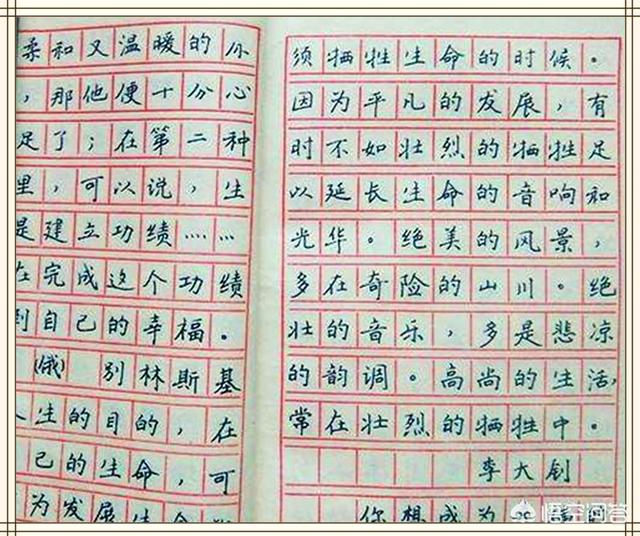 柔和又温暖的小
，那他便十分心
足了；在第二种
里，可以说，生
是建立功绩……
在完成这个功绩
到自己的幸福。
(俄) 别林斯基
人生的目的，在
己的生命，可
为发展生命
须牺牲生命的时候。
因为平凡的发展，有
时不如壮烈的牺牲足
以延长生命的音响和
光华。绝美的风景，
多在奇险的山川。绝
壮的音乐，多是悲凉
的韵调。高尚的生活，
常在壮烈的牺牲中。
李大钊
你想成为
悟空问答